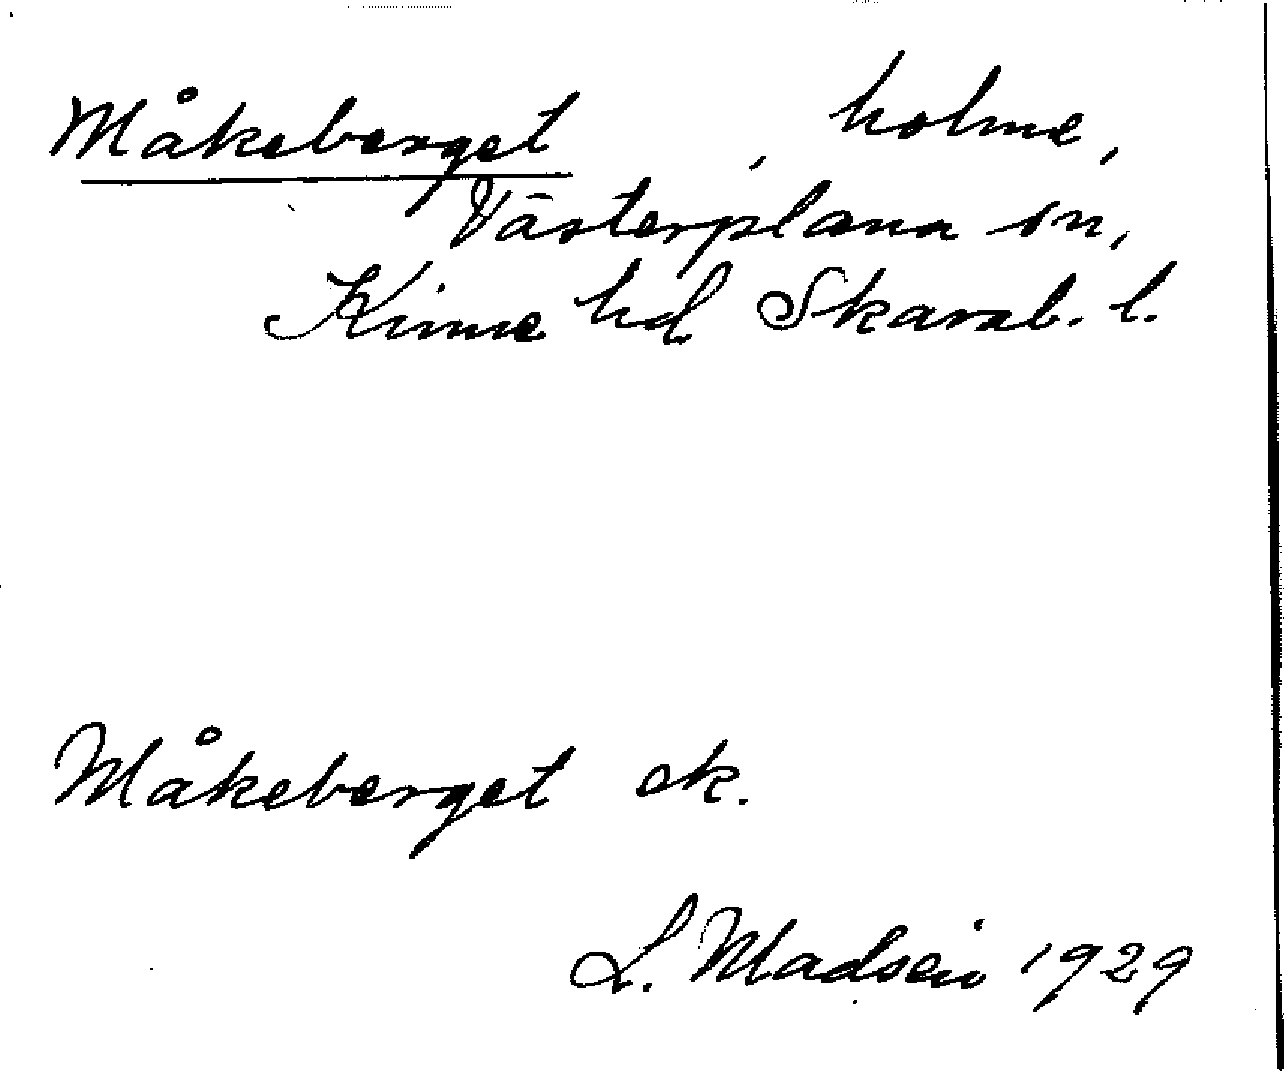 Måkeberget , holme,
Västerplana sn,
Kinne hd Skarab. l.
Måkeberget ek.
L. Madsén 1929